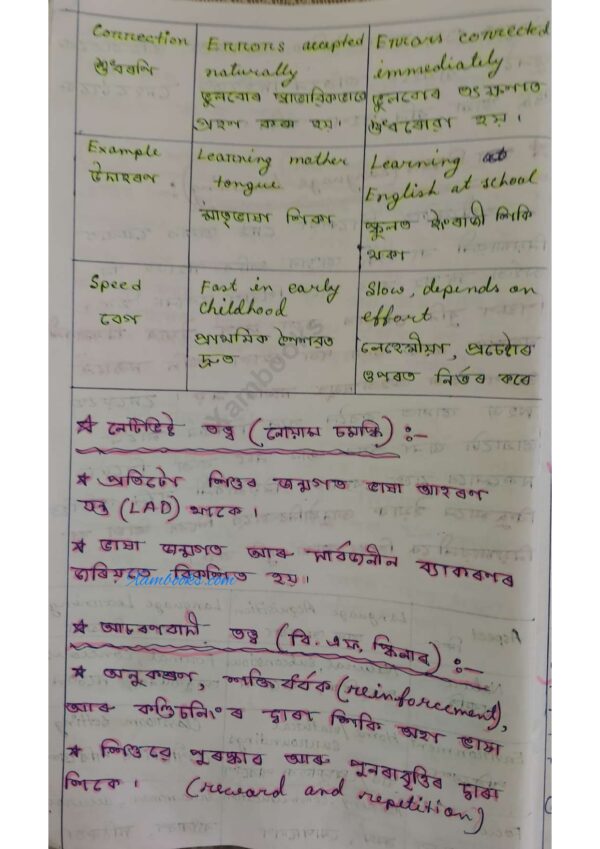 Connection
শুধৰণি
Errors accepted
naturally
ভুলবোৰ স্বাভাৱিকভাৱে
গ্ৰহণ কৰা হয়।
Errors corrected
immediately
ভুলবোৰ তৎক্ষণাত
শুধৰোৱা হয়।
Example
উদাহৰণ
Learning mother
tongue
মাতৃভাষা শিকা
Learning
English at school
স্কুলত ইংৰাজী শিকি
থকা
Speed
বেগ
Fast in early
childhood
প্ৰাথমিক শৈশৱত
দ্ৰুত
Slow, depends on
effort
লেহেমীয়া, প্ৰচেষ্টাৰ
ওপৰত নিৰ্ভৰ কৰে
★ নেটিভিষ্ট তত্ব (নোৱাম চমস্কি) :-
★ প্ৰতিটো শিশুৰ জন্মগত ভাষা আহৰণ
যন্ত্ৰ (LAD) থাকে।
★ ভাষা জন্মগত আৰু সাৰ্বজনীন ব্যাকৰণৰ
জৰিয়তে বিকশিত হয়।
Xambooks.com
★ আচৰণবাদী তত্ব (বি. এফ. স্কিনাৰ) :-
★ অনুকৰণ, শক্তিবৰ্ধক (reinforcement),
আৰু কণ্ডিচনিংৰ দ্বাৰা শিকি অহা ভাষা
★ শিশুৱে পুৰস্কাৰ আৰু পুনৰাবৃত্তিৰ দ্বাৰা
শিকে। (reward and repetition)
Xambooks